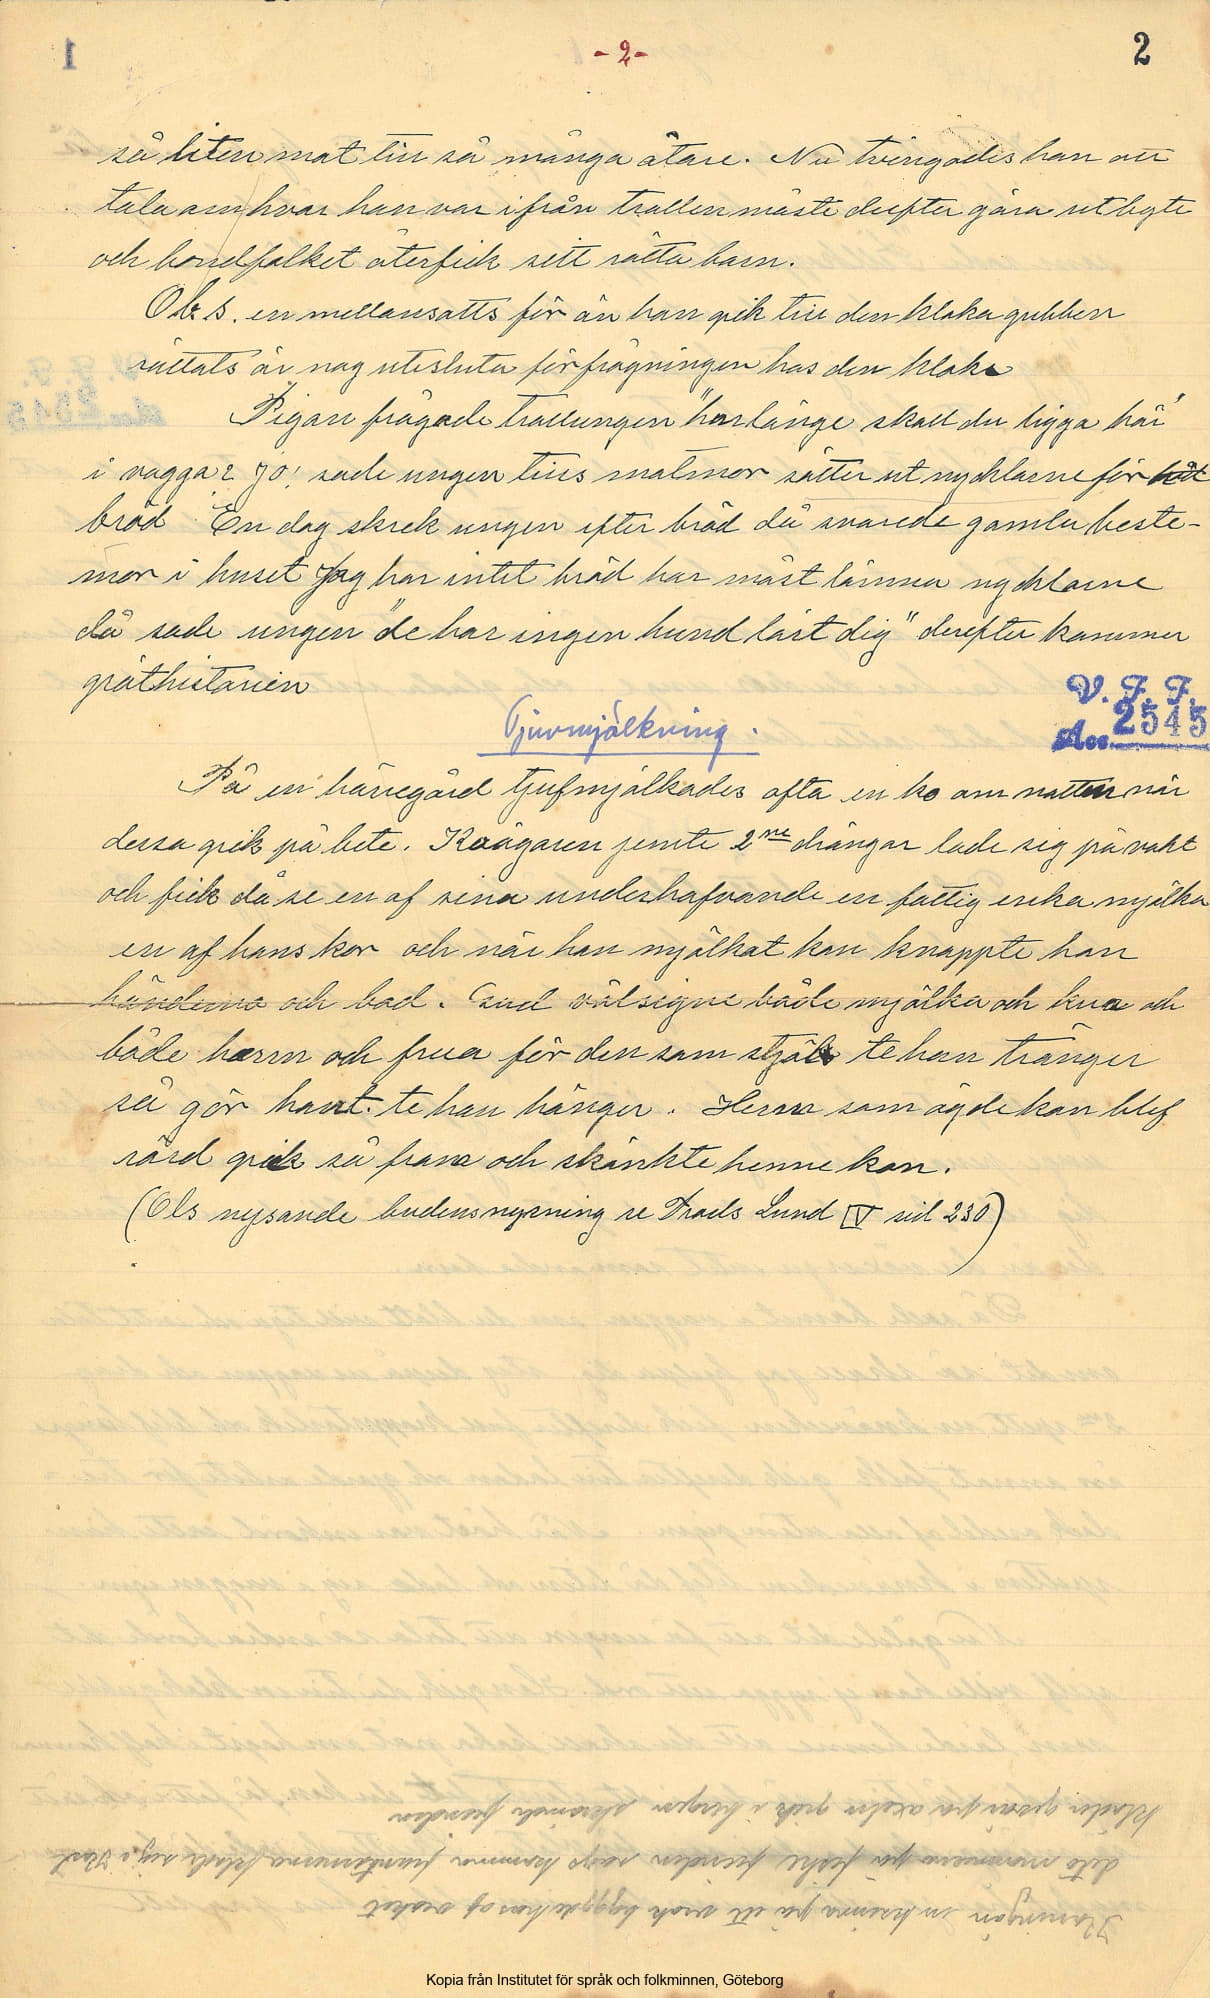 - 2 -
2
så liten mat till så många ätare. Nu tvingades han att
tala om hvar han var ifrån trollen måste derefter göra utbyte
och bondfolket återfick sitt rätta barn.
Obs. en mellansatts för än han gik till den kloka gubben
rättats är nog utesluta förfrågningen hos den kloke
Pigan frågade trollungen "hur länge skall du ligga här"
i vagga? Jo! sade ungen tills matmor sätter ut nycklarne för
bröd En dag skrek ungen efter bröd då svarede gamla beste-
mor i huset Jag har intet bröd har mäst lämna nycklarne
då sade ungen "de har ingen hund lärt dig" derefter kommer
gröthistorien
V. F. F.
Acc. 2545
Tjuvmjölkning.
På en herregård tjufmjölkades ofta en ko om natten när
dessa gick på bete. Koägaren jemte 2ne drängar lade sig på vakt
och fick då se en af sina underhafvande en fattig enka mjölka
en af hans kor och när hon mjölkat kon knäppte hon
händerna och bad. Gud välsigne både mjölka och kua och
både herrn och frua för den som stjäl te han tränger
så gör han't te han hänger. Herrn som ägde kon blef
rörd gick så fram och skänkte henne kon.
(Ols nysande budensnysning se Troels Lund V sid 230)
Kopia från Institutet för språk och folkminnen, Göteborg